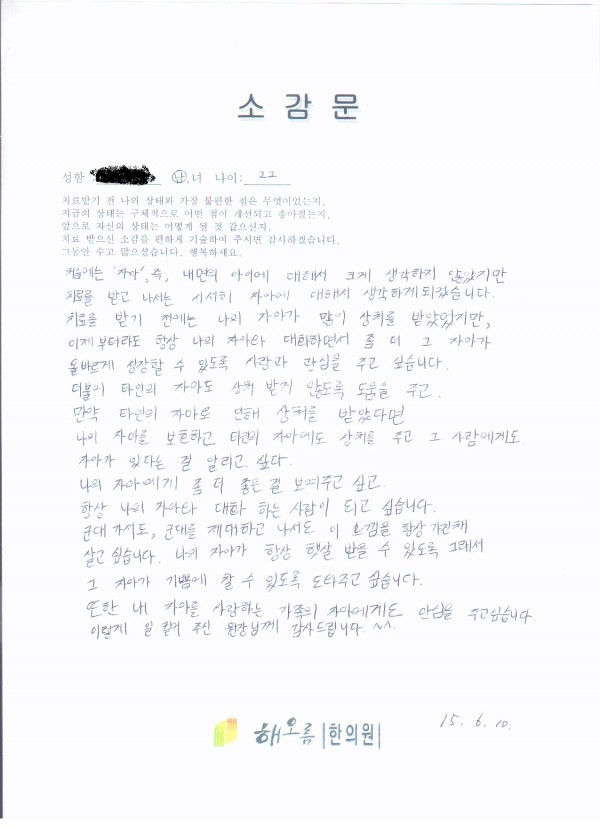 소 감 문
성함 남,녀 나이: 22
치료받기 전 나의 상태와 가장 불편한 점은 무엇이었는지,
지금의 상태는 구체적으로 어떤 점이 개선되고 좋아졌는지,
앞으로 자신의 상태는 어떻게 될 것 같으신지,
치료 받으신 소감을 편하게 기술하여 주시면 감사하겠습니다.
그동안 수고 많으셨습니다. 행복하세요.
처음에는 '자아', 즉, 내면의 아이에 대해서 크게 생각하지 않았지만
치료를 받고 나서는 서서히 자아에 대해서 생각하게 되었습니다.
치료를 받기 전에는 나의 자아가 많이 상처를 받았었지만,
이제부터라도 항상 나의 자아와 대화하면서 좀 더 그 자아가
올바르게 성장할 수 있도록 사랑과 관심을 주고 싶습니다.
더불어 타인의 자아도 상처 받지 않도록 도움을 주고,
만약 타인의 자아로 인해 상처를 받았다면
나의 자아를 보호하고 타인의 자아에도 상처를 주고 그 사람에게도
자아가 있다는 걸 알리고 싶다.
나의 자아에게 좀 더 좋은 걸 보여주고 싶고.
항상 나의 자아와 대화 하는 사람이 되고 싶습니다.
군대 가서도, 군대를 제대하고 나서도 이 느낌을 항상 간직해
살고 싶습니다. 나의 자아가 항상 햇살 받을 수 있도록 그래서
그 자아가 기쁨에 찰 수 있도록 도와주고 싶습니다.
또한 내 자아를 사랑하는 가족의 자아에게도 안심을 주고싶습니다.
이렇게 일 깨워 주신 원장님께 감사드립니다. ^^.
15. 6. 10.
해오름 한의원